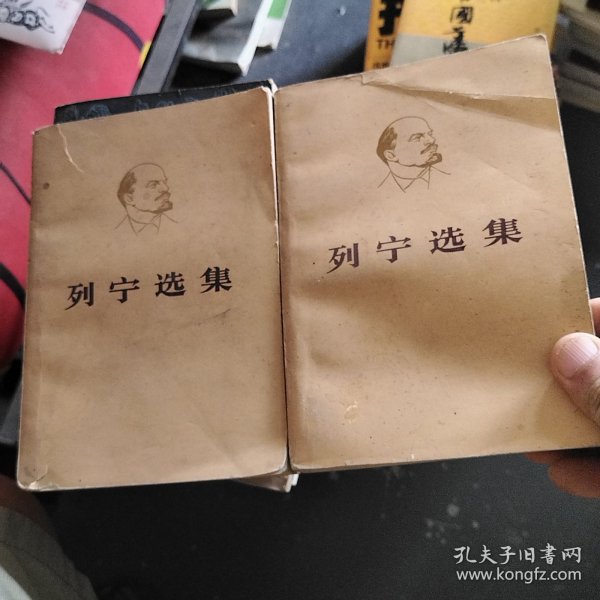 列宁选集
列宁选集
TH
國
孔夫子旧书网
www.kongfz.com